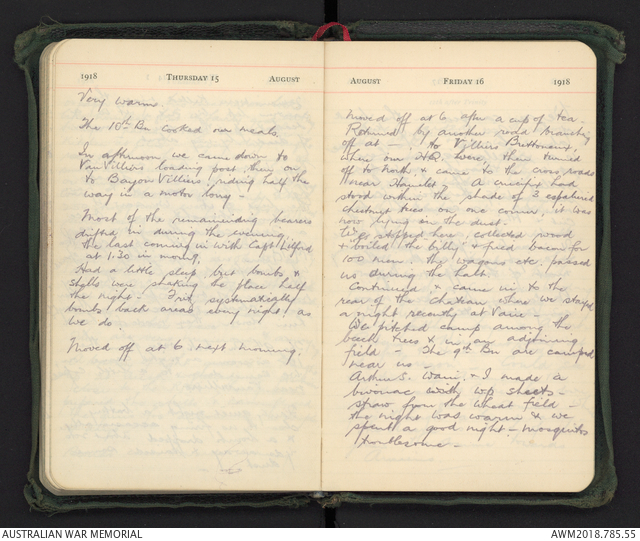 1918 THURSDAY 15 AUGUST
Very warm
The 10th Bn cooked our meals
In afternoon we came down to
Vauvilliers loading post then on
to Bayonvilliers, riding half the
way in a motor lorry –
Most of the remaining bearers
drifted in during the evening,
the last coming in with Capt Lilford
at 1.30 in morng,
Had a little sleep but bombs &
shells were shaking the place half
the night – Fritz systematically
bombs back areas every night as
we do.
Moved off at 6 next morning.
AUGUST FRIDAY 16 1918
Moved off at 6 after a cup of tea.
Returned by another road branching
off at – , to Villiers Buttoneux,
where our H.Q. were, then turned
off to north & came to the cross roads
near Hamelet. A crucifix had
stood within the shade of 3 espaliered
chestnut trees on one corner, it was
now lying in the dust
We stopped here, collected wood
& boiled the billy & fried bacon for
100 men. The wagons etc. passed
us during the halt.
Continued & came in to the
rear of the chateau where we stayed
a night recently at Vaire –
We pitched camp among the
beech trees & in an adjoining
field – The 9th Bn are camped
near us –
Arthur S. & I made a
bivouac with w/p sheets –
straw from the wheat field –
the night was warm & we
spent a good night – mosquitos
troublesome –
AUSTRALIAN WAR MEMORIAL AWM2018.785.55